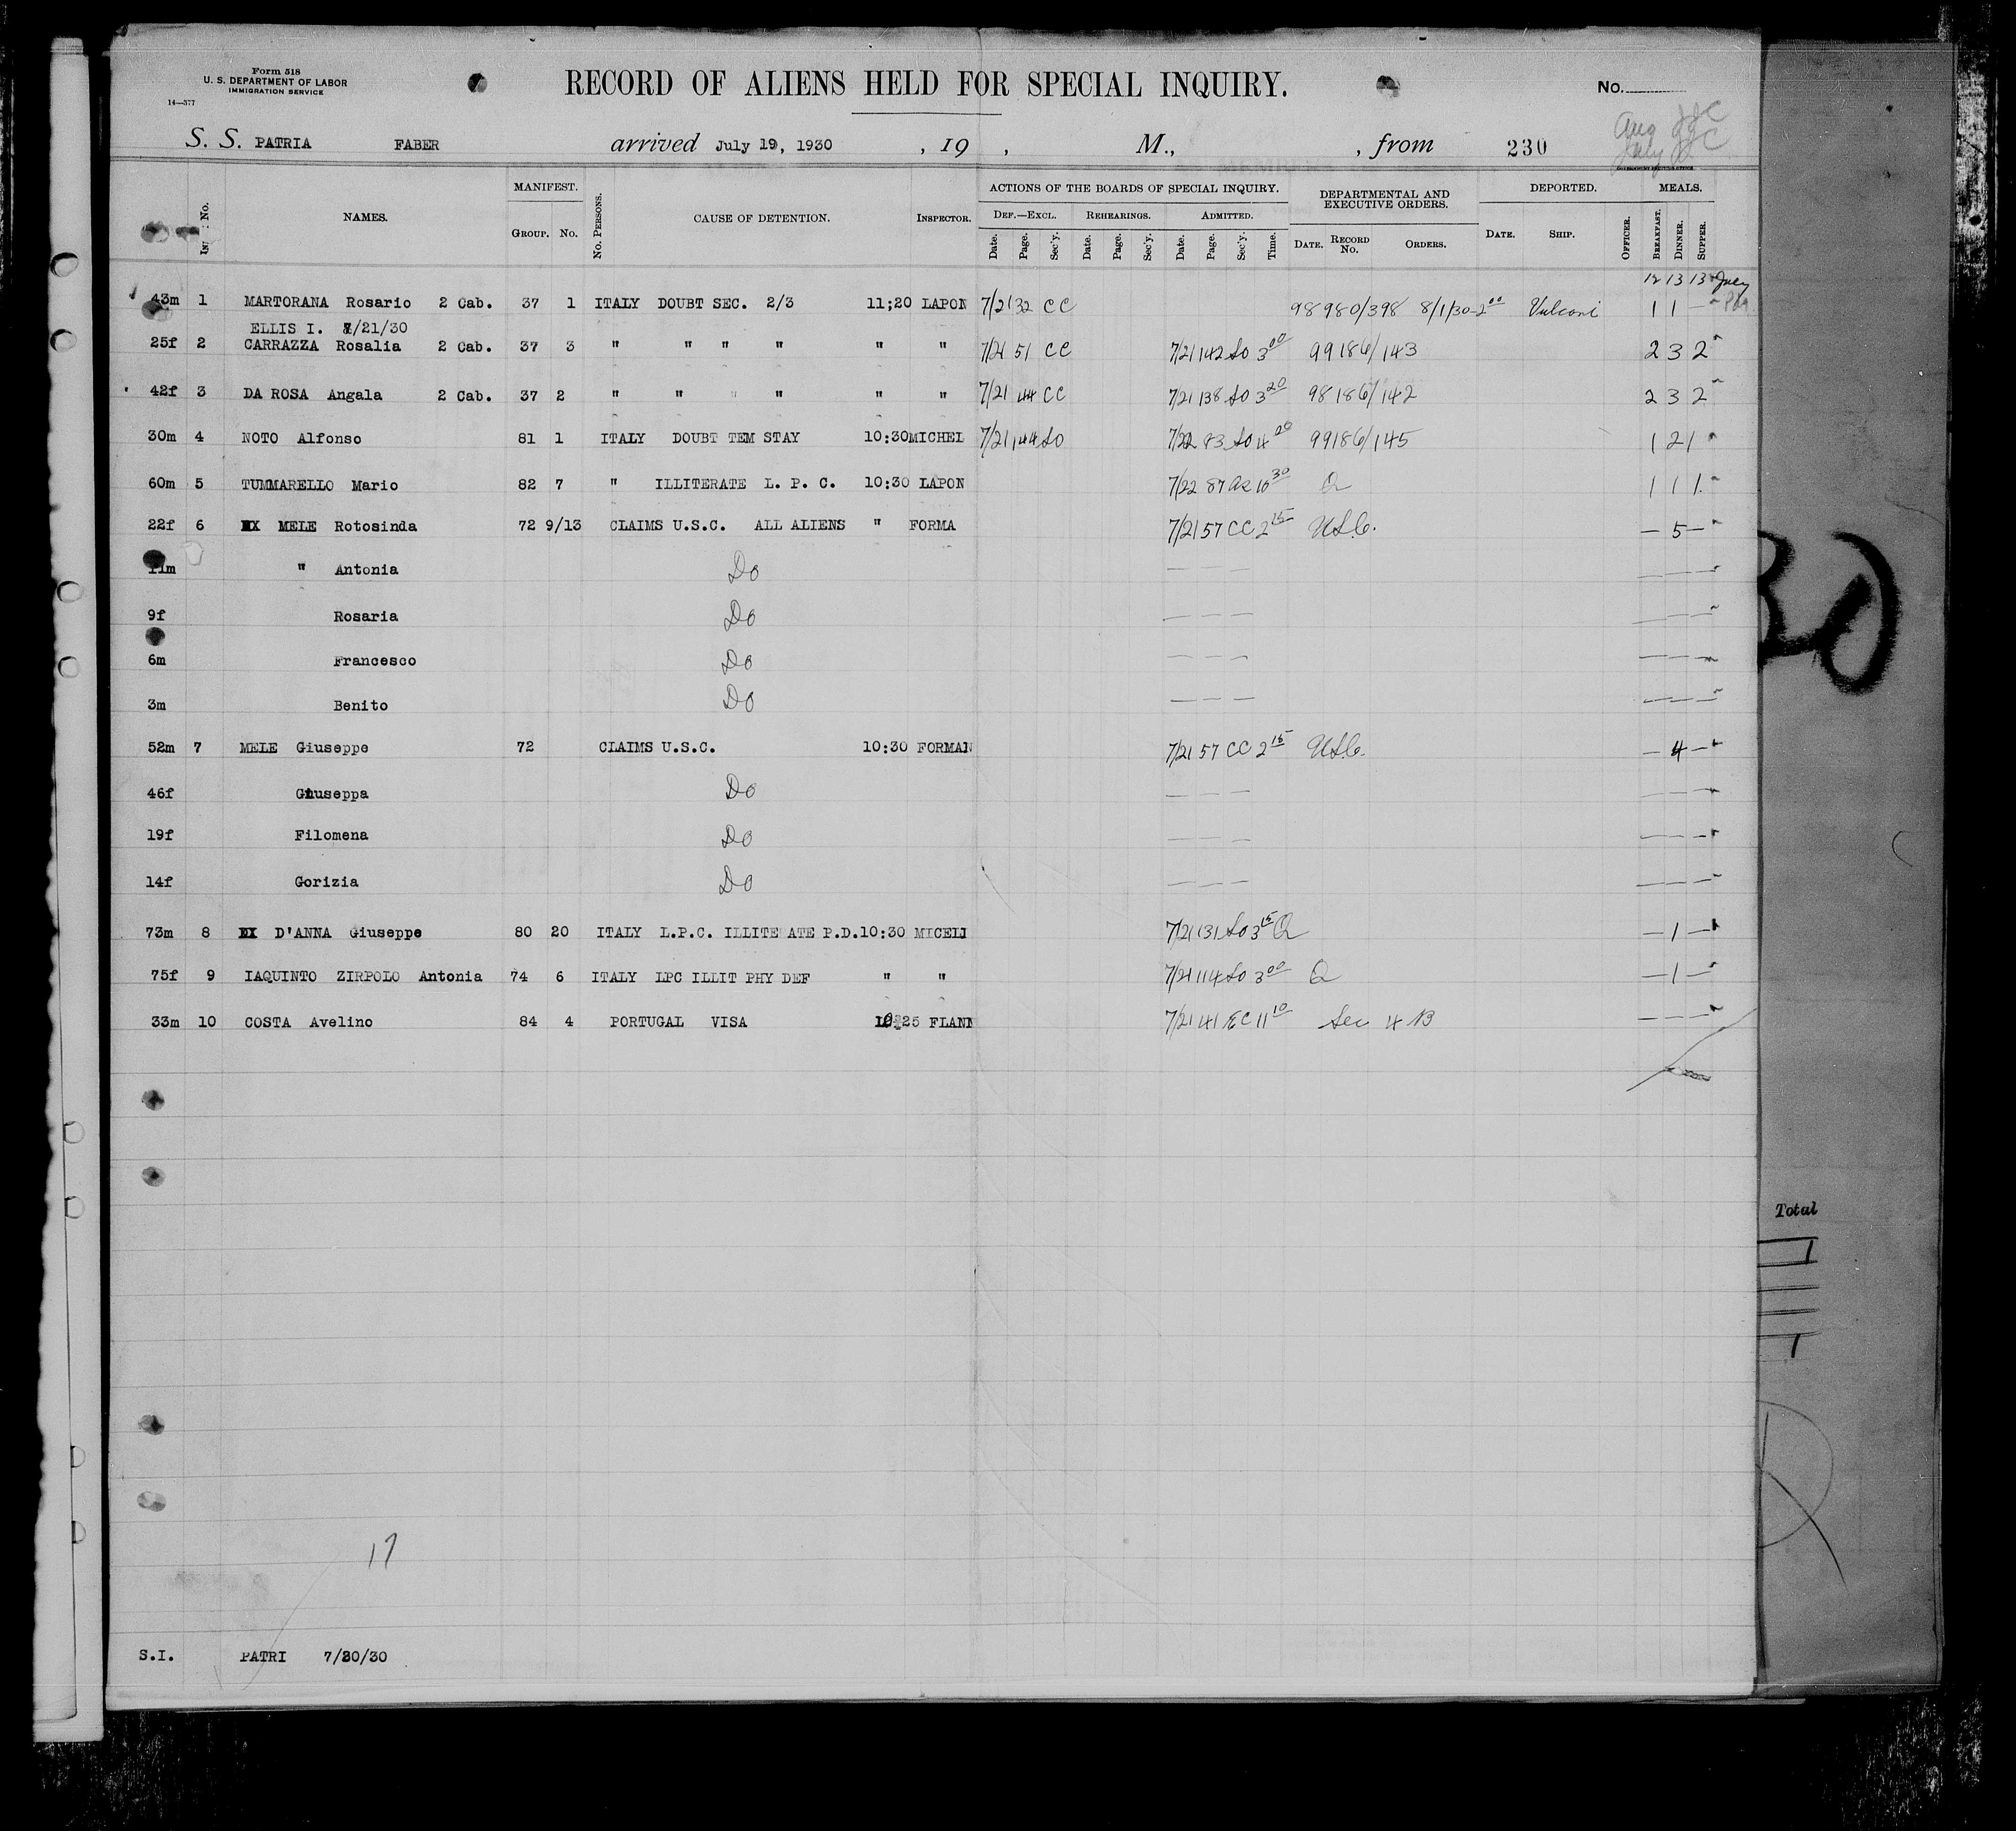 Form 518
U. S. DEPARTMENT OF LABOR
IMMIGRATION SERVICE
14—577
RECORD OF ALIENS HELD FOR SPECIAL INQUIRY.
No.
Aug
July
S. S. PATRIA FABER arrived July 19, 1930 , 19 , M., , from 230
No. NAMES. MANIFEST. GROUP. No. No. PERSONS. CAUSE OF DETENTION. INSPECTOR. ACTIONS OF THE BOARDS OF SPECIAL INQUIRY. DEF.—EXCL. REHEARINGS. ADMITTED. Date. Page. Sec'y. Date. Page. Sec'y. Date. Page. Sec'y. Time. DEPARTMENTAL AND EXECUTIVE ORDERS. DATE. RECORD No. ORDERS. DEPORTED. DATE. SHIP. OFFICER. MEALS. BREAKFAST. DINNER. SUPPER.
12 13 13 July
43m 1 MARTORANA Rosario 2 Cab. 37 1 ITALY DOUBT SEC. 2/3 11;20 LAPON 7/21 32 CC 98980/398 8/1/30-2 00 Vulcani 1 1 —
ELLIS I. 7/21/30
25f 2 CARRAZZA Rosalia 2 Cab. 37 3 " " " " " " 7/21 51 CC 7/21 142 SO 3 00 99186/143 2 3 2
42f 3 DA ROSA Angala 2 Cab. 37 2 " " " " " " 7/21 44 CC 7/21 138 SO 3 20 98186/142 2 3 2
30m 4 NOTO Alfonso 81 1 ITALY DOUBT TEM STAY 10:30 MICHEL 7/21 144 SO 7/22 83 SO 4 20 99186/145 1 2 1
60m 5 TUMMARELLO Mario 82 7 " ILLITERATE L. P. C. 10:30 LAPON 7/22 87 10 30 Q 1 1 1
22f 6 MELE Rotosinda 72 9/13 CLAIMS U.S.C. ALL ALIENS " FORMA 7/21 57 CC 2 15 USC. — 5 —
11m " Antonia Do — — — — — —
9f Rosaria Do — — — — — —
6m Francesco Do — — — — — —
3m Benito Do — — — — — —
52m 7 MELE Giuseppe 72 CLAIMS U.S.C. 10:30 FORMAN 7/21 57 CC 2 15 USC. — 4 —
46f Giuseppa Do — — — — — —
19f Filomena Do — — — — — —
14f Gorizia Do — — — — — —
73m 8 D'ANNA Giuseppe 80 20 ITALY L.P.C. ILLITE ATE P.D. 10:30 MICELI 7/21 131 SO 3 15 Q — 1 —
75f 9 IAQUINTO ZIRPOLO Antonia 74 6 ITALY LPC ILLIT PHY DEF " " 7/21 114 SO 3 00 Q — 1 —
33m 10 COSTA Avelino 84 4 PORTUGAL VISA 10:25 FLANN 7/21 41 EC 11 10 Sec 4 B — — —
Total
17
S.I. PATRI 7/20/30